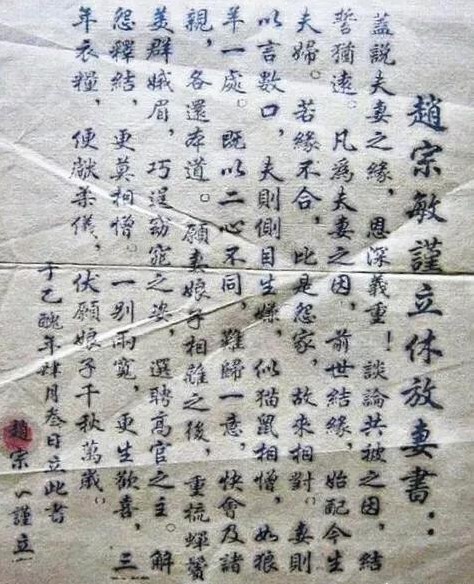 趙宗敏謹立休放妻書：
蓋說夫妻之緣，恩深義重！談論共被之因，結
誓猶遠。凡爲夫妻之因，前世結緣，始配今生
夫婦。若緣不合，比是怨家，故來相對。妻則
以言數口，夫則側目生嫌，似猫鼠相憎，如狼
羊一處。既以二心不同，難歸一意，快會及諸
親，各還本道。願妻娘子相離之後，重梳蟬鬢
美群娥眉，巧逞窈窕之姿，選聘高官之主。解
怨釋結，更莫相憎。一別兩寬，更生歡喜，三
年衣糧，便獻柔儀，伏願娘子千秋萬歲。
于乙醜年肆月叁日立此書
趙宗謹立